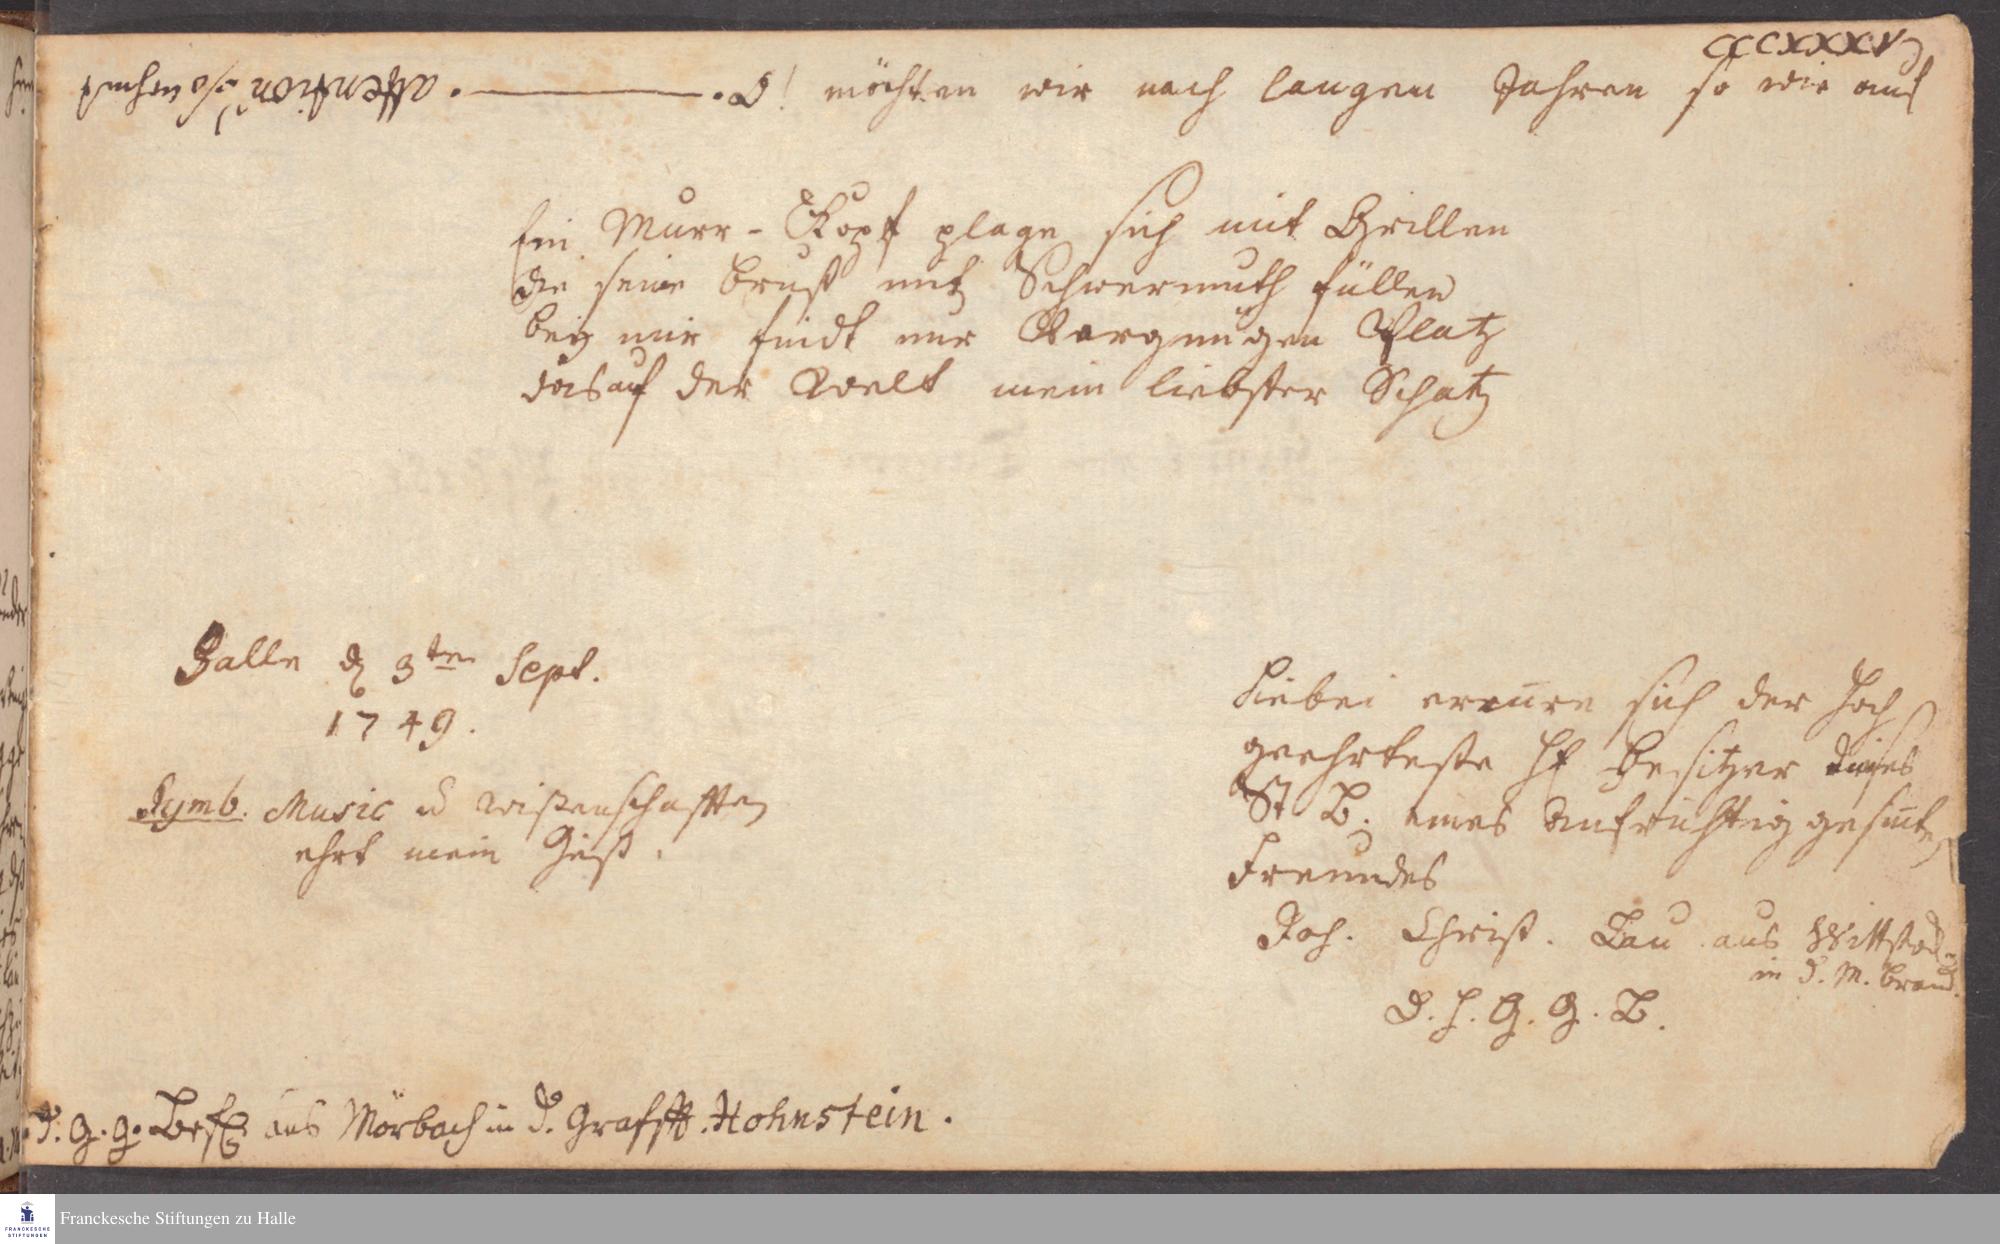 CCCXXXV
O! möchten wir nach langen Jahren so wie auf
Ein Murr-Kopf plage sich mit Grillen
die seine Brust mit Schwermuth füllen
bey mir findt nur Vergnügen Platz
das auf der Welt mein liebster Schatz
Halle d 3ten Sept.
1749.
Symb. Music u Wißenschafften
ehrt mein Geist.
Hiebei erinre sich der Hoch
geehrteste H Besitzer dieses
St B. eines aufrichtig gesinten
Freundes
Joh. Christ. Lau aus Wittstock
in d. M. Brand.
D. H. G. G. B.
d. G. G. Befl. aus Mörbach in d. Grafsch. Hohnstein.
Franckesche Stiftungen zu Halle
FRANCKESCHE
STIFTUNGEN